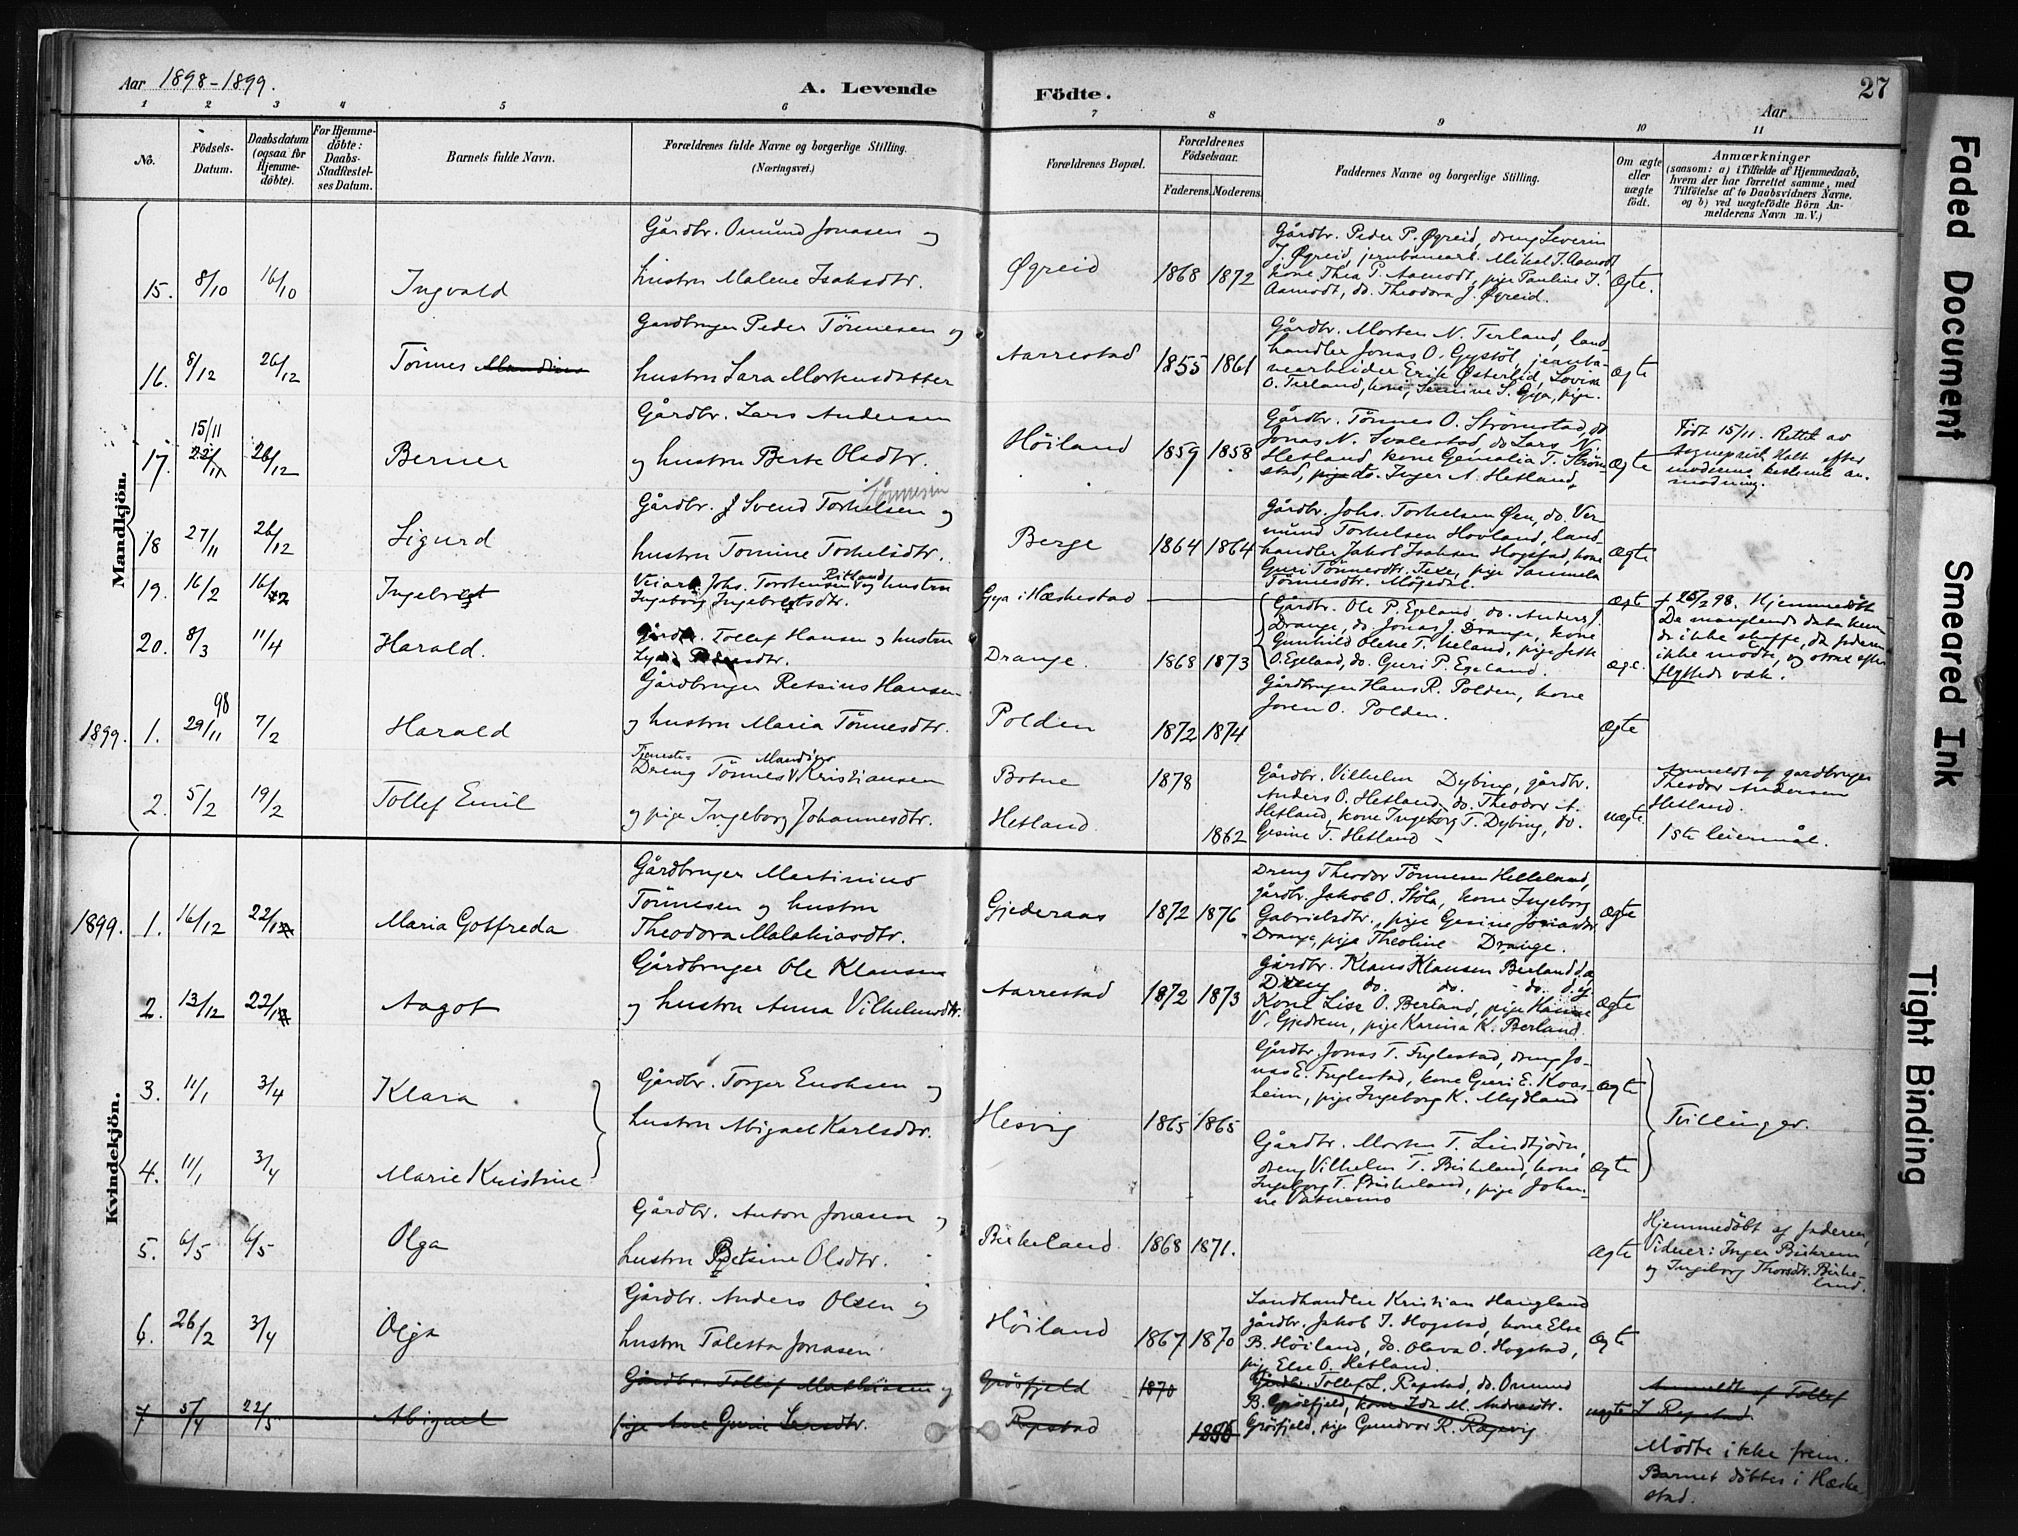 Aar 1898-1899.
A. Levende Födte.
Aar
27
1 2 3 4 5 6 7 8 9 10 11
No.
Födsels-Datum.
Daabsdatum (ogsaa for Hjemme-döbte).
For Hjemme-döbte: Daabs-Stadfæstel-ses Datum.
Barnets fulde Navn.
Forældrenes fulde Navne og borgerlige Stilling.
(Næringsvei.)
Forældrenes Bopæl.
Forældrenes Födselsaar.
Faderens. Moderens.
Faddernes Navne og borgerlige Stilling.
Om ægte eller uægte födt.
Anmærkninger
(saasom: a) i Tilfælde af Hjemmedaab,
hvem der har forrettet samme, med
Tilföielse af to Daabsvidners Navne.
og b) ved uægtefödte Börn An-
melderens Navn m. V.)
Mandkjön.
15. 8/10 16/10 Ingvald
Gårdbr. Omund Jonasen og
hustru Malene Isaksdtr.
Øgreid 1868 1872
Gårdbr. Peder P. Øgreid, dreng Severin
J. Øgreid, jernbanearb. Mikal J. Aamodt,
kone Thea P. Aamodt, pige Pauline J.
Aamodt, do. Theodora J. Øgreid.
Ægte.
16. 8/12 26/12 Tönnes Mandius
Gardbruger Peder Tönnesen og
hustru Sara Mortensdatter
Aarrestad 1855 1861
Gårdbr. Morten N. Terland, land-
handler Jonas O. Gystöl, jernba-
nearbeider Erik Østerlid, Lovise
O. Terland, kone, Serine S. Gya, pige.
Ægte
17. 15/11 22/11 26/12 Berner
Gårdbr. Lars Andersen
og hustru Berte Olsdtr.
Höiland 1859 1858
Gårdbr. Tönnes O. Strømstad, do
Jonas N. Svalestad, do Lars N.
Hetland, kone Gemalia T. Strøm-
stad, pige do. Inger A. Hetland
Ægte
Født 15/11. Rettet av
sogneprest Helt efter
moderens bestemte an-
modning.
18 27/11 26/12 Sigurd
Tönnesen
Gårdbr. J Svend Torkelsen og
hustru Tomine Torkelsdtr.
Berge 1864 1864
Gårdbr. Johs. Torkelsen Øen, do. Ver-
mund Torkelsen Hovland, land-
handler Jakob Isaksen Hogstad, kone
Guri Tönnesdtr. Texe, pige Sammela
Tönnesdtr. Mögedal.
Ægte
19. 16/2 16/2 Ingebret
Veiarb. Johs. Torstensen Ritland og hustru
Ingeborg Ingebretsdtr.
Gya i Hæskestad
ægte
† 26/2 98. Hjemmedöbt
De manglende data kun-
de ikke skaffe, da faderen
ikke mødte, og straks efter
flyttede væk.
20. 8/3 11/4 Harald.
Gårdbr. Tollef Hansen og hustru
Lydia Pedersdtr.
Drange. 1868 1873
Gårdbr. Ole P. Egeland, do. Anders J.
Drange, do Jonas J. Drange, kone
Gunhild Olene T. Ueland, pige Jette
O. Egeland, do. Guri P. Egeland.
ægte.
1899. 1. 29/11 98 7/2 Harald
Gårdbruger Retsius Hansen
og hustru Maria Tönnesdtr.
Polden 1872 1874
Gårdbruger Hans R. Polden, kone
Joren O. Polden.
Ægte
2. 5/2 19/2 Tollef Emil
Tjeneste-
Dreng Tönnes Mandius Kristiansen
og pige Ingeborg Johannesdtr.
Botne
Hetland.
1878
1862
Gårdbr. Vilhelm Dybing, gårdbr.
Anders O. Hetland, do. Theodor A.
Hetland, kone Ingeborg T. Dybing, do.
Gesine T. Hetland
uægte.
Anmeldt og gardbruger
Theodor Andersen
Hetland.
1ste leiermål.
Kvindekjön.
1899. 1. 16/12 22/1 Maria Gotfreda
Gårdbruger Martinius
Tönnesen og hustru
Theodora Malakiasdtr.
Gjederaas 1872 1876
Dreng Theodor Tönnesen Helleland,
gårdbr. Jakob O. Stöla, kone Ingeborg
Gabrielsdtr., pige Gesine Jonasdtr.
Drange, pige Theoline Drange.
Ægte
2. 13/12 22/1 Aagot
Gårdbruger Ole Klausen
og hustru Anna Vilhelmsdtr.
Aarrestad 1872 1873
Gårdbr. Klaus Klausen Berland d.æ
Dreng do. do. do. d.y.
Kone Lise O. Berland, pige Hanne
V. Gjedrem, pige Karina K. Berland.
Ægte
3. 11/1 3/4 Klara
Gårdbr. Torger Enoksen og
hustru Abigael Karlsdtr.
Hesvig 1865 1865
Gårdbr. Jonas T. Fuglestad, dreng Jo-
nas E. Fuglestad, kone Guri E. Koas-
heim, pige Ingeborg K. Mydland
Ægte
Tvillinger.
4. 11/1 3/4 Marie Kristine
Gårdbr. Morten T. Lindtjörn,
dreng Vilhelm T. Birkeland, kone
Ingeborg T. Birkeland, pige Johan-
ne Vatnemo
Ægte
5. 6/5 6/5 Olga
Gårdbr. Anton Jonasen og
hustru Betsine Olsdtr.
Birkeland. 1868 1871.
Ægte
Hjemmedöbt af faderen,
Vidner: Inger Birkrem
og Ingeborg Thorsdtr. Birke-
land.
6. 26/2 3/4 Olga
Gårdbr. Anders Olsen og
hustru Taletta Jonasen
Höiland 1867 1870
Landhandler Kristian Haugland
gårdbr. Jakob J. Hogstad, kone Else
B. Höiland, do. Olava O. Hogstad,
pige Else O. Hetland.
Ægte
7 5/4 22/5 Abigael
Gårdbr. Tollef Mathiasen og
pige Ane Gurie Larsdtr.
Grösfjeld
Repstad
1870
Gårdbr. Tollef L. Repstad, do. Omund
B. Grösfjeld, kone Ida M. Andreasdtr.
Grösfjeld, pige Gundvor R. Rægevig
uægte
Anmeldt af Tollef
L Repstad
Mødte ikke frem.
Barnet döbtes i Hæske-
stad.
Faded Document
Smeared Ink
Tight Binding